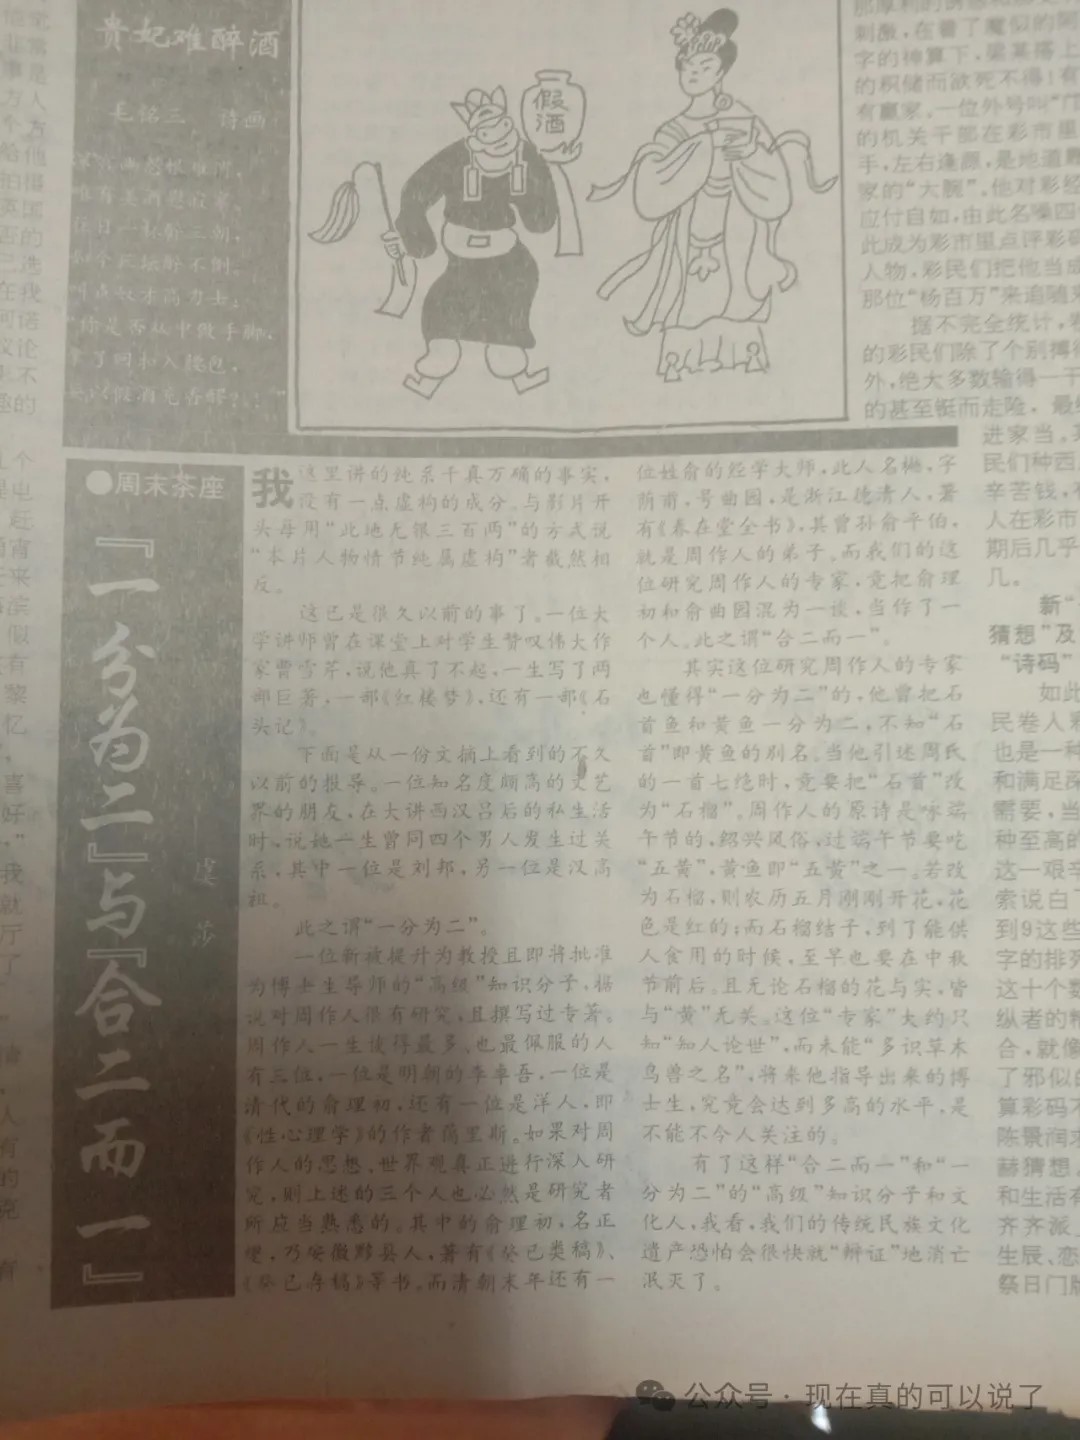 贵妃难醉酒
毛铭三 诗画
假
酒
往日一杯解三朝,
你是否从中做手脚,
拿了回扣入腰包,
●周末茶座
『一分为二』与『合二而一』
虞
莎
我这里讲的纯系千真万确的事实,
没有一点虚构的成分。与影片开
头每用“此地无银三百两”的方式说
“本片人物情节纯属虚构”者截然相
反。
这已是很久以前的事了。一位大
学讲师曾在课堂上对学生赞叹伟大作
家曹雪芹,说他真了不起,一生写了两
部巨著,一部《红楼梦》,还有一部《石
头记》。
下面是从一份文摘上看到的不久
以前的报导。一位知名度颇高的文艺
界的朋友,在大讲西汉吕后的私生活
时,说她一生曾同四个男人发生过关
系,其中一位是刘邦,另一位是汉高
祖。
此之谓“一分为二”。
一位新被提升为教授且即将批准
为博士生导师的“高级”知识分子,据
说对周作人很有研究,且撰写过专著。
周作人一生读得最多、也最佩服的人
有三位,一位是明朝的李卓吾,一位是
清代的俞理初,还有一位是洋人,即
《性心理学》的作者蔼里斯。如果对周
作人的思想、世界观真正进行深入研
究,则上述的三个人也必然是研究者
所应当熟悉的。其中的俞理初,名正
燮,乃安徽黟县人,著有《癸巳类稿》、
《癸巳存稿》等书。而清朝末年还有一
位姓俞的经学大师,此人名樾,字
荫甫,号曲园,是浙江德清人,著
有《春在堂全书》,其曾孙俞平伯,
就是周作人的弟子。而我们的这
位研究周作人的专家,竟把俞理
初和俞曲园混为一谈,当作了一
个人。此之谓“合二而一”。
其实这位研究周作人的专家
也懂得“一分为二”的,他曾把石
首鱼和黄鱼一分为二,不知“石
首”即黄鱼的别名。当他引述周氏
的一首七绝时,竟要把“石首”改
为“石榴”。周作人的原诗是咏端
午节的,绍兴风俗,过端午节要吃
“五黄”,黄鱼即“五黄”之一。若改
为石榴,则农历五月刚刚开花,花
色是红的;而石榴结子,到了能供
人食用的时候,至早也要在中秋
节前后。且无论石榴的花与实,皆
与“黄”无关。这位“专家”大约只
知“知人论世”,而未能“多识草木
鸟兽之名”,将来他指导出来的博
士生,究竟会达到多高的水平,是
不能不令人关注的。
有了这样“合二而一”和“一
分为二”的“高级”知识分子和文
化人,我看,我们的传统民族文化
遗产恐怕会很快就“辩证”地消亡
泯灭了。
刺激,在着了魔似的阿
字的神算下,梁某搭上
的积储而欲死不得!有
有赢家,一位外号叫“门
的机关干部在彩市里
手,左右逢源,是地道戴
家的“大腕”。他对彩经
应付自如,由此名噪四
此成为彩市里点评彩码
人物,彩民们把他当成
那位“杨百万”来追随
据不完全统计,
的彩民们除了个别搏
外,绝大多数输得一干
的甚至铤而走险,最
进家当。
民们种西
辛苦钱,
人在彩市
期后几乎
几。
新“
猜想”及
“诗码”
如此
民卷入彩
也是一种
和满足
需要,当
种至高的
这一艰辛
索说白了
到9这些
字的排列
这十个数
纵者的精
合,就像
了邪似的
算彩码不
陈景润求
赫猜想,
和生活有
齐齐派上
生辰、恋
祭日门牌
公众号·现在真的可以说了